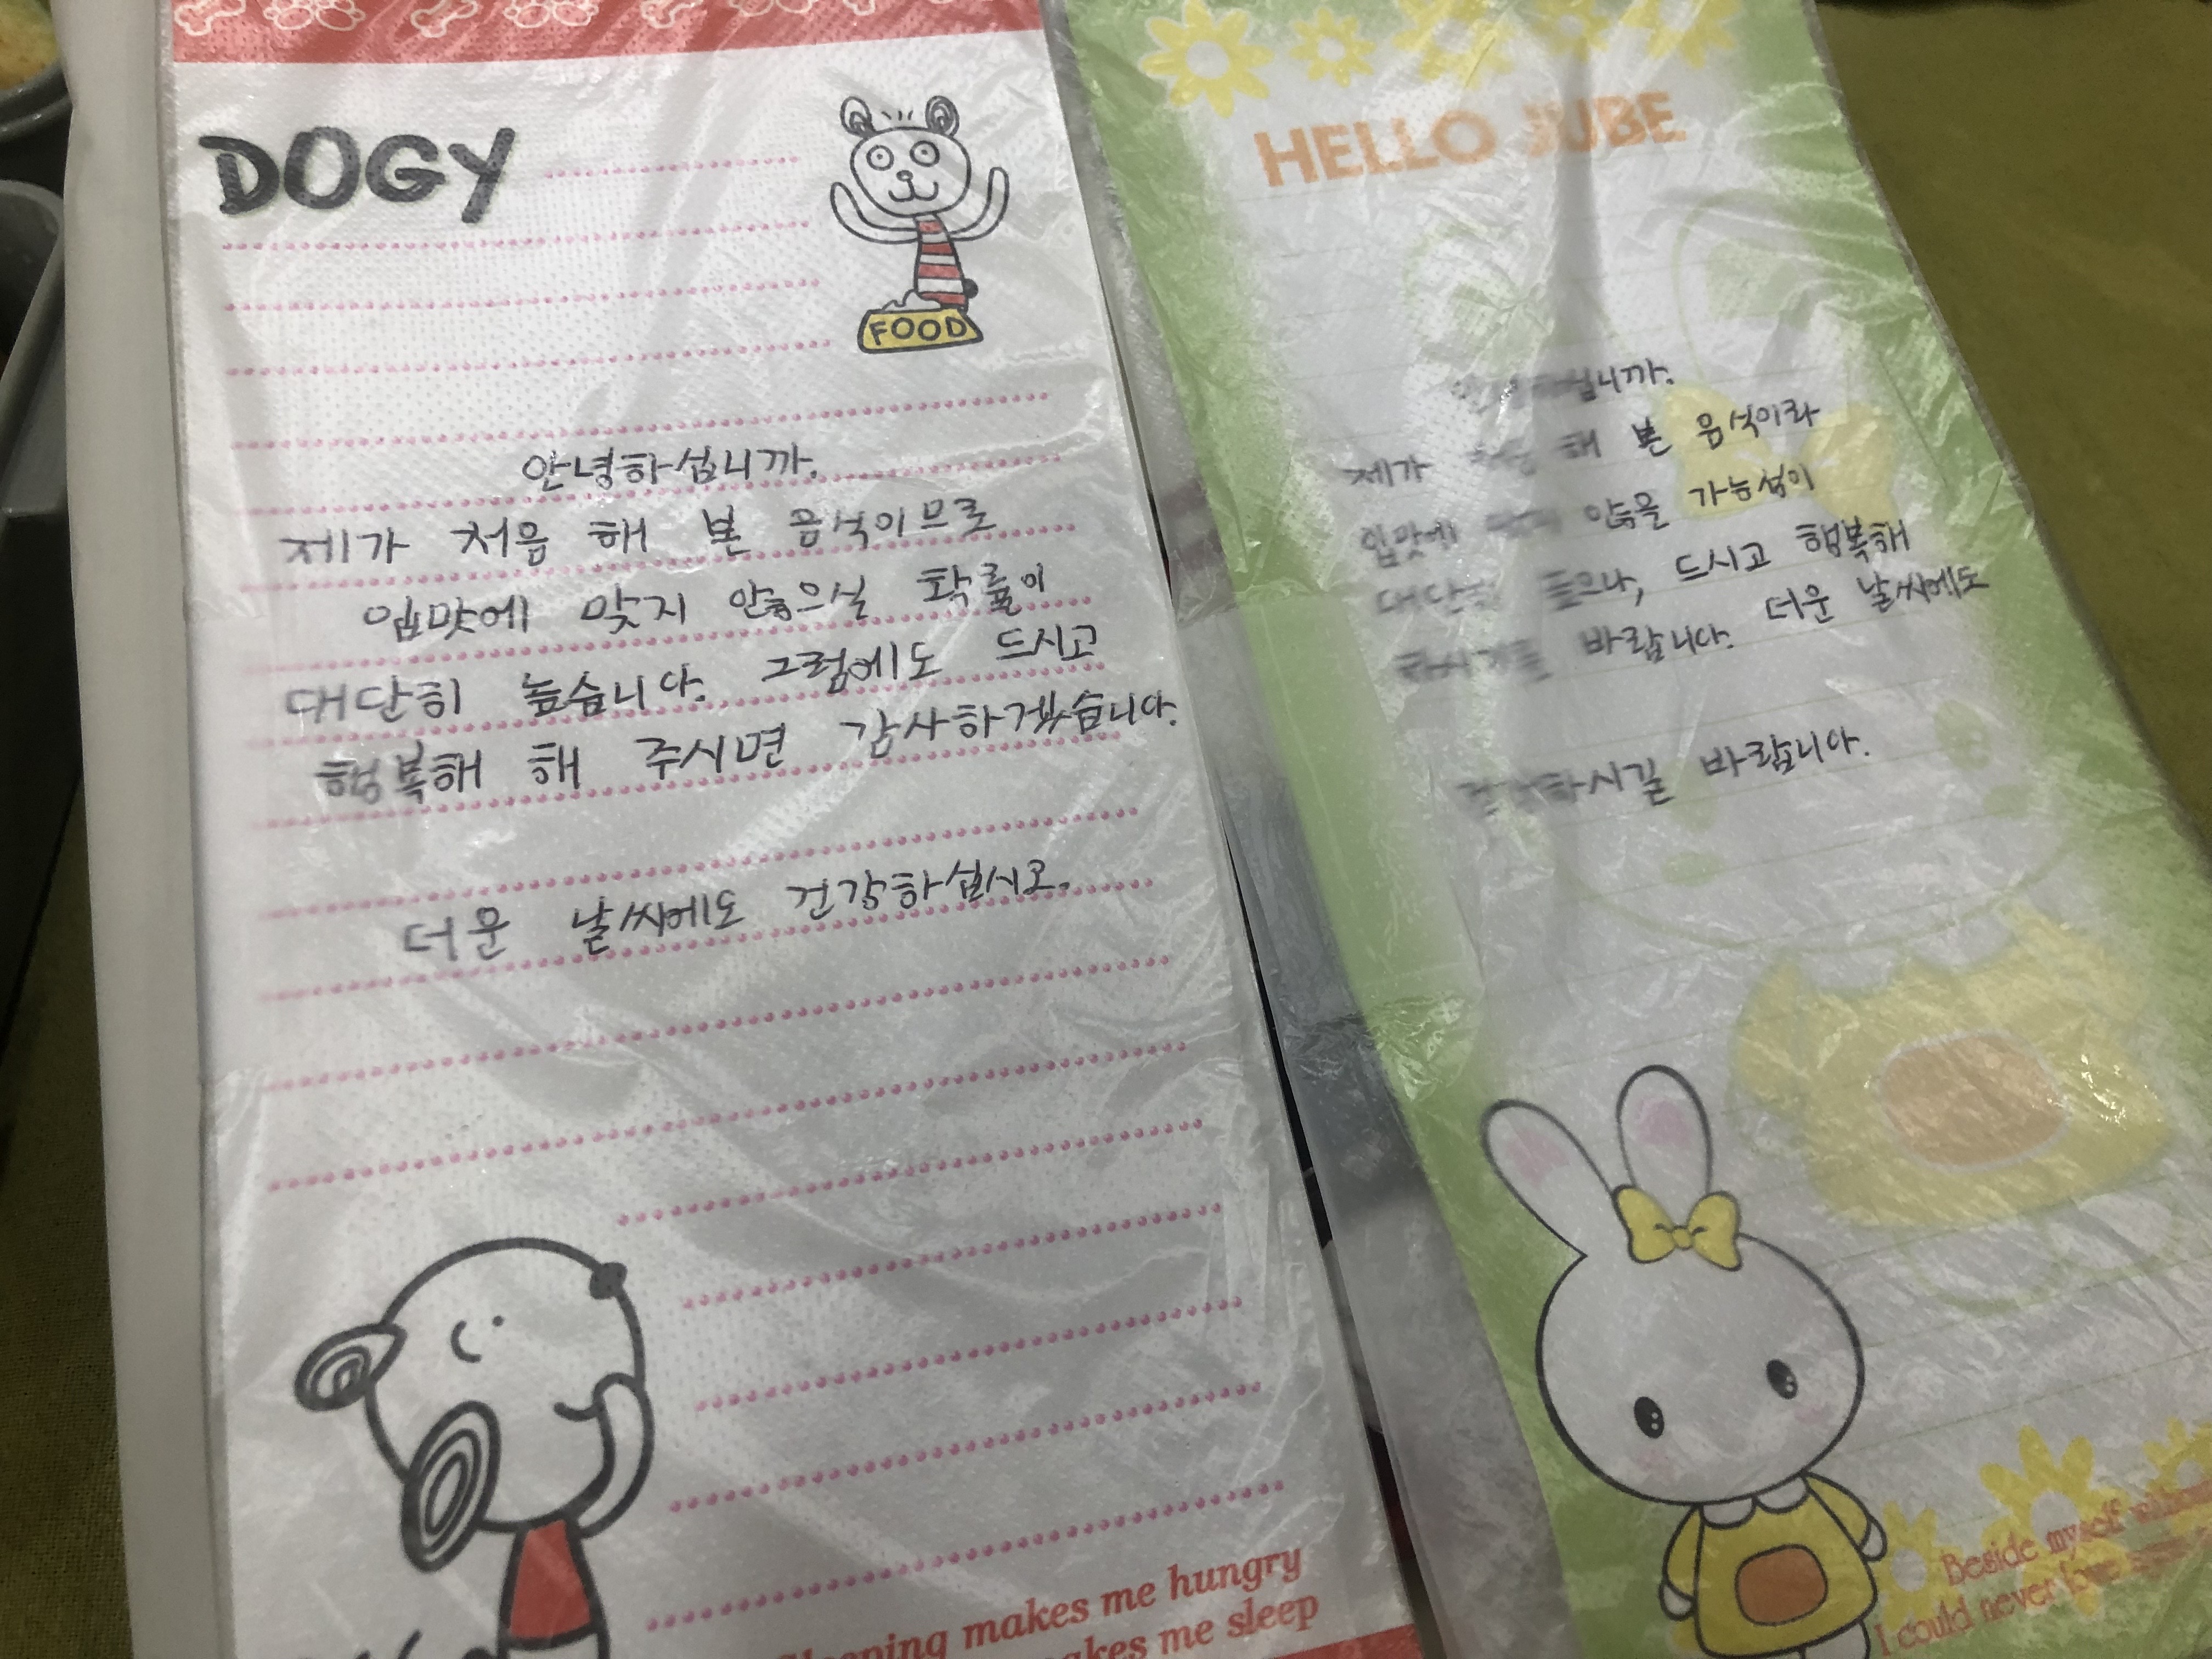 DOGY
FOOD
안녕하십니까.
제가 처음 해 본 음식이므로
입맛에 맞지 않으실 확률이
대단히 높습니다. 그럼에도 드시고
행복해 해 주시면 감사하겠습니다.
더운 날씨에도 건강하십시오.
makes me hungry
makes me sleep
HELLO JUBE
안녕하십니까.
제가 처음 해 본 음식이라
입맛에 맞지 않을 가능성이
대단히 높으나, 드시고 행복해
하시기를 바랍니다. 더운 날씨에도
건강하시길 바랍니다.
Beside myself without
I could never love